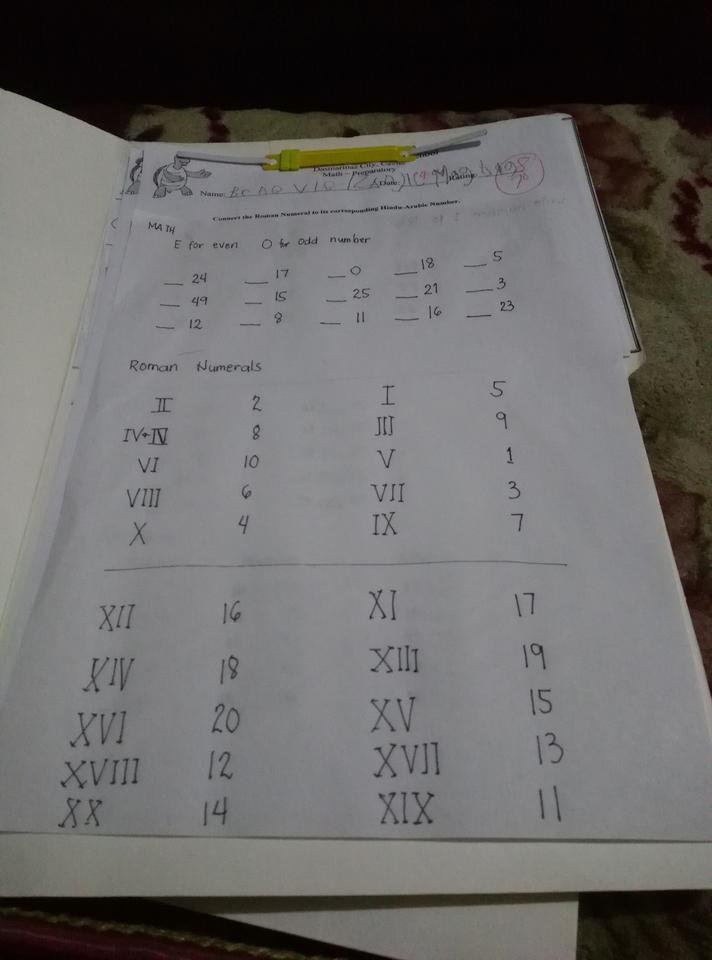 Dasmariñas City, Cavite
Math – Preparatory
Name: Date: Rating:
Connect the Roman Numeral to its corresponding Hindu-Arabic Number.
MATH
E for even O for odd number
__ 24 __ 17 __ 0 __ 18 __ 5
__ 49 __ 15 __ 25 __ 21 __ 3
__ 12 __ 8 __ 11 __ 16 __ 23
Roman Numerals
II 2 I 5
IV IV 8 III 9
VI 10 V 1
VIII 6 VII 3
X 4 IX 7
XII 16 XI 17
XIV 18 XIII 19
XVI 20 XV 15
XVIII 12 XVII 13
XX 14 XIX 11